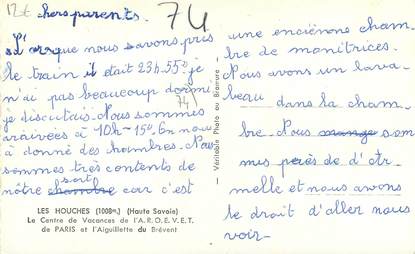 chers parents.
74
Lorsque nous avons pris
le train il était 23h.55 je
n'ai pas beaucoup dormi
74
je discutais. Nous sommes
arrivées à 10h-15. On nous
à donné des chambres. Nous
sommes très contents de
sort
nôtre chambre car c'est
LES HOUCHES (1008m.) (Haute Savoie)
Le Centre de Vacances de l'A.R.O.E.V.E.T.
de PARIS et l'Aiguillette du Brévent.
Véritable Photo au Bromure
une enciénone cham-
bre de monitrices.
Nous avons un lava-
beau dans la cham-
bre. Nous mange som
mes perès de d'Ar-
melle et nous avons
le droit d'aller nous
voir-